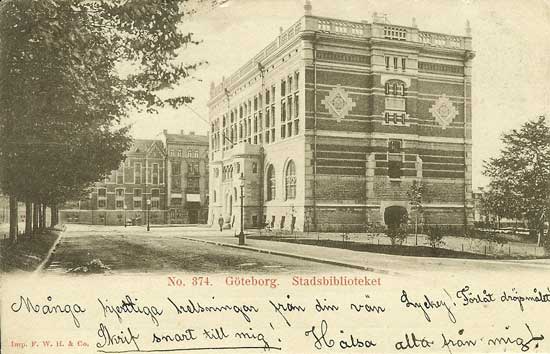 No. 374. Göteborg. Stadsbiblioteket
Många hjertliga helsningar från din vän Lyckey! Förlåt
Imp. F. W. H. & Co. Skrif snart till mig! Hälsa alla från mig!